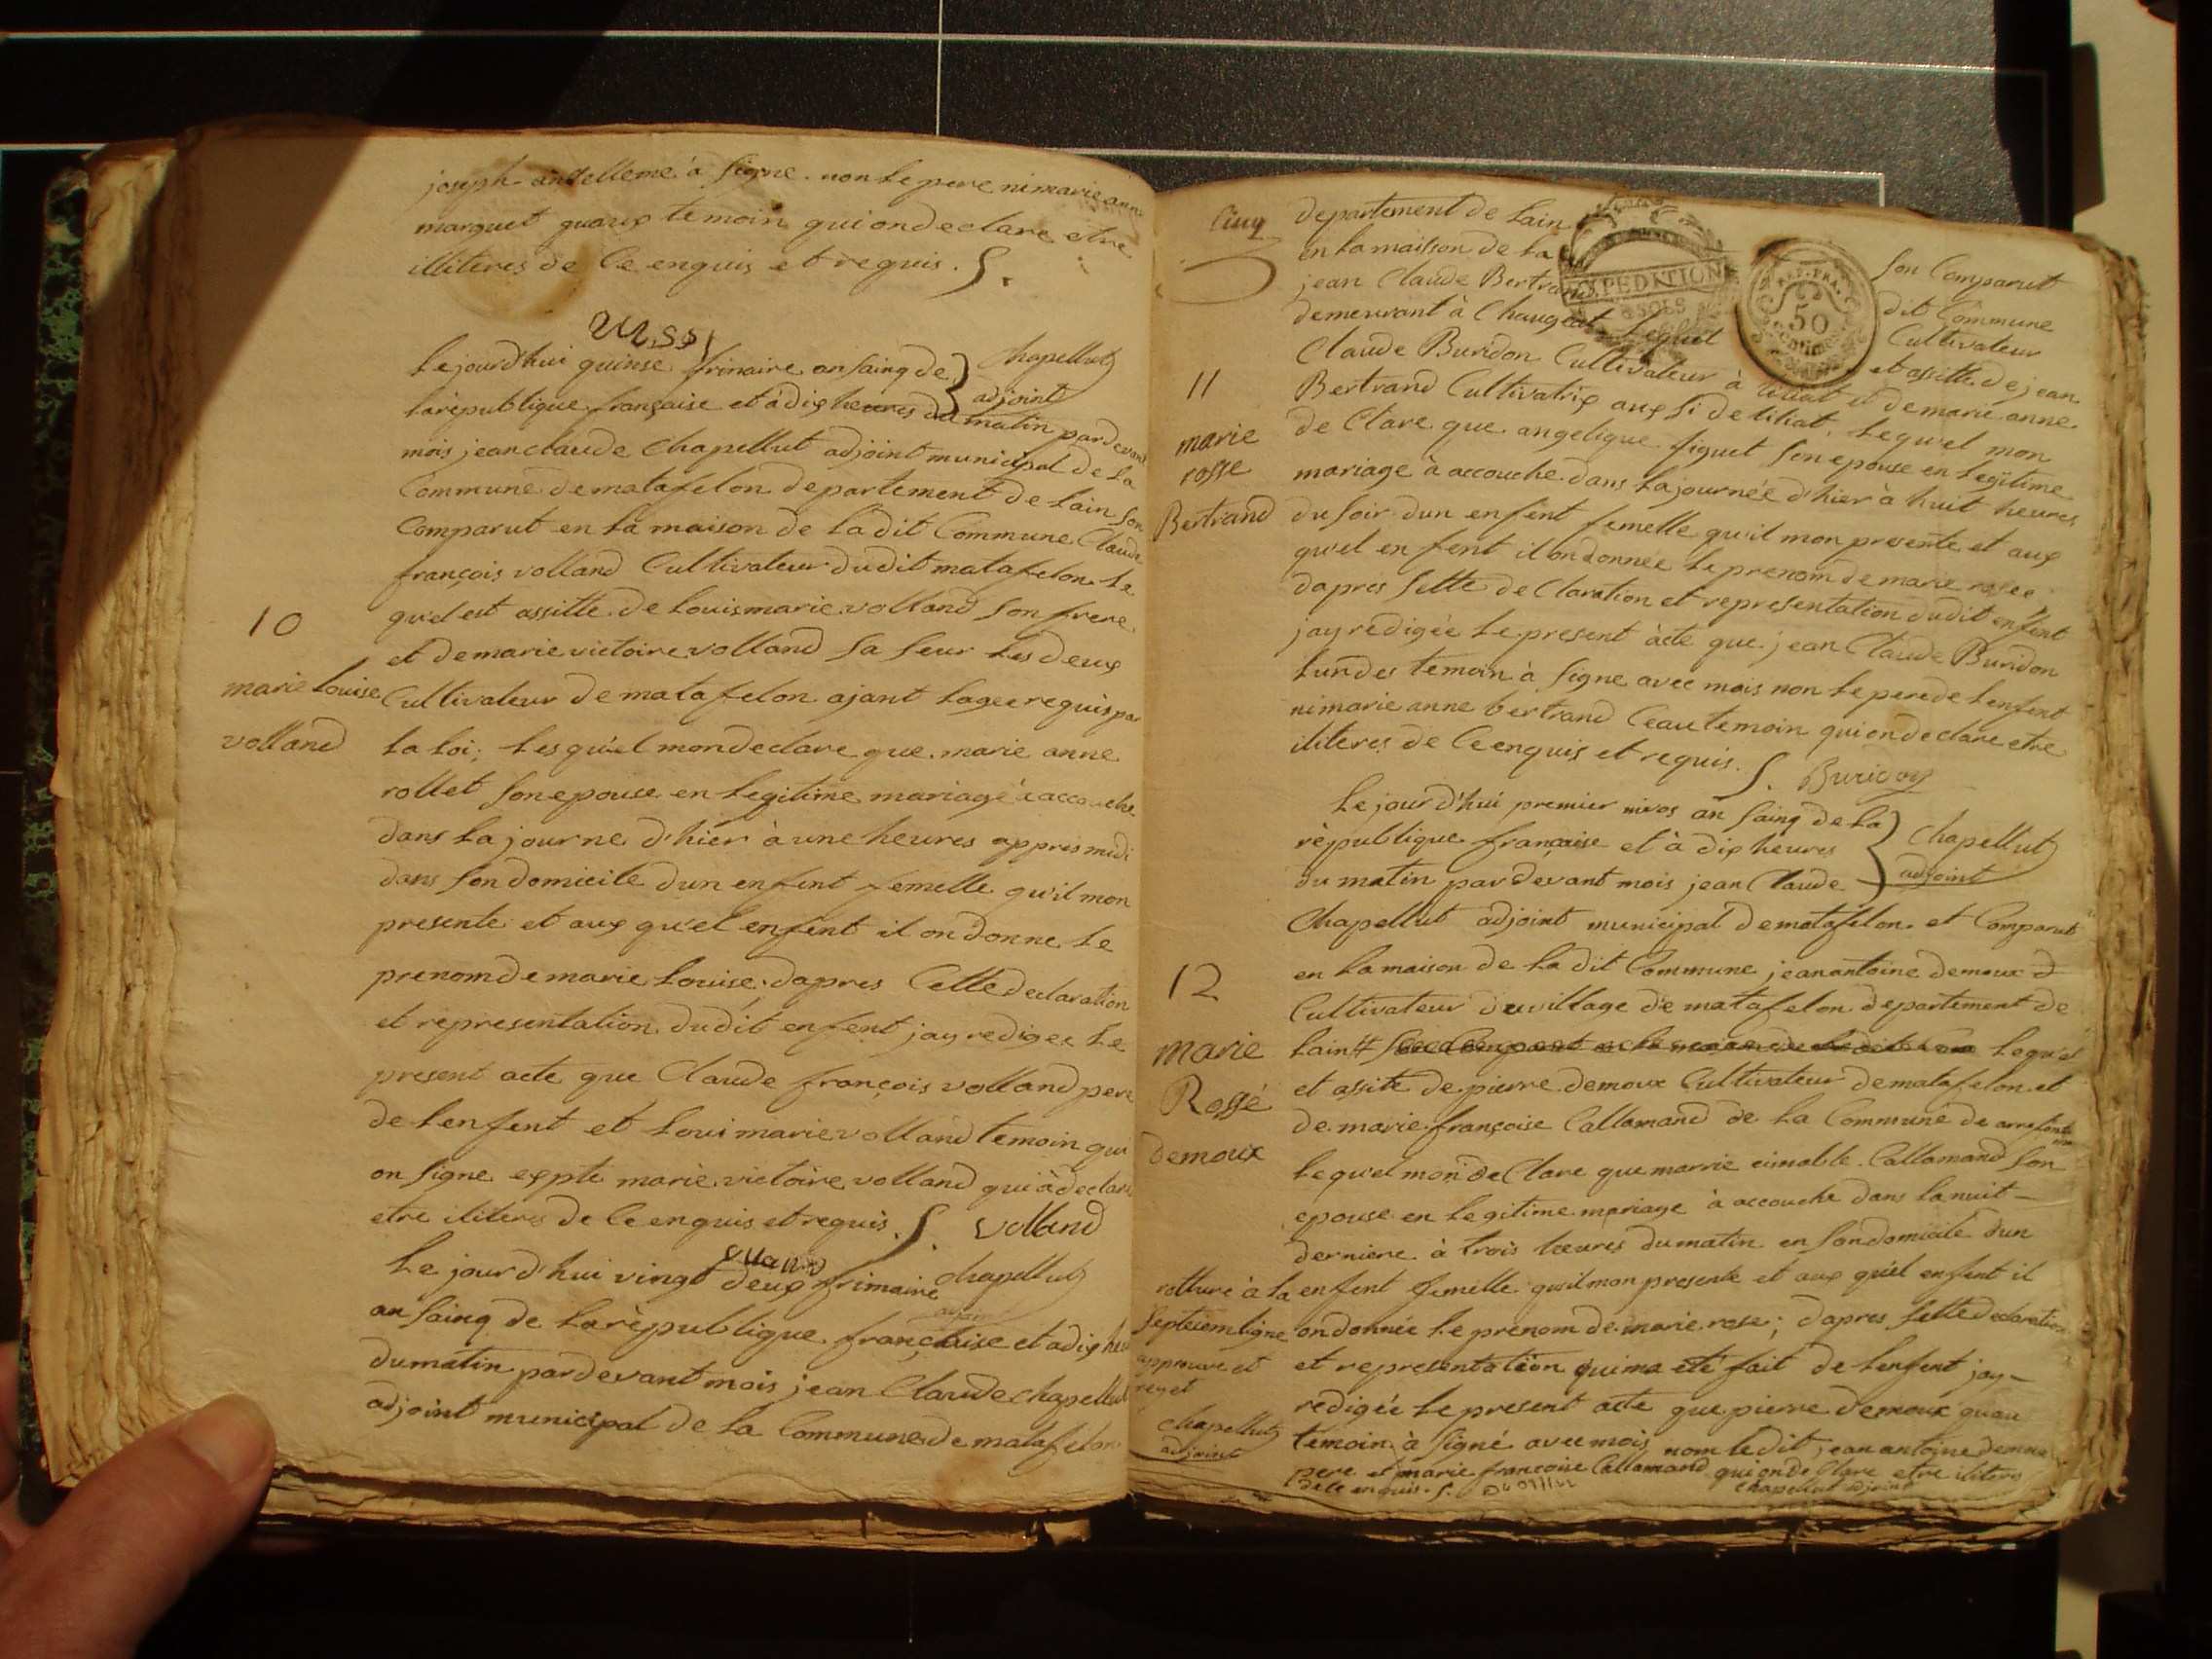 joseph antelleme à signe non le pere ni marie anne
marguet quaux temoin qui on declare etre
illiteres de Ce enquis et requis. S.
Le jourd'hui quinse frimaire an sainq de
larèpublique française et à dix heures du matin pardevant
Chapellut
adjoint
mois jean claude Chapellut adjoint municipal de la
Commune de matafelon departement de Lain son
Comparut en la maison de ladit Commune Claude
françois volland Cultivateur dudit matafelon. Le
quel est assitte de louis marie volland son frere
10
et de marie victoire volland sa seur Les deux
marie Louise
volland
Cultivateur de matafelon ajant lagee requis par
la loi; Lesquiel mon declare que marie anne
rollet son epouse en legitime mariage à accouche
dans la journe d'hier à une heures appres midi
dans son domicile dun enfent femelle qu'il mon
presente et aux qu'el enfent il on donne Le
prenom de marie Louise; dapres Cette declaration
et representation dudit enfent jay redigee Le
present acte que Claude françois volland pere
de Lenfent et Loui marie volland temoin qui
on signe expte marie victoire volland qui à declare
etre iliteres de Ce enquis et requis. S. volland
Le jourd'hui vingt deux frimaire
Chapellut
adjoint
an sainq de la rèpublique française et a dix heu
du matin pardevant mois jean Claude chapellut
adjoint municipal de la Commune de matafelon
Cinq
departement de Lain son Comparut
en la maison de la dit Commune
EXPEDITION
SOLS
REP. FRA.
50
Centimes
jean Claude Bertrand Cultivateur
demeurant à Chaugeat Lequel et assitte de jean
Claude Buridon Cultivateur à et de marie anne
11
marie
rosse
Bertrand
Bertrand Cultivatrix aux si de liliat. Lequ'el mon
de Clare que angelique figuet son epouse en Legitime
mariage à accouche dans la journée d'hier à huit heures
du soir dun enfent femelle qu'il mon presente et aux
qu'el enfent il on donnée Le prenom de marie rosee
dapres sette de Claration et representation dudit enfent
jay redigée Le present àcte que jean Claude Buridon
Lundes temoin à signe avec mois non Le pere de Lenfent
ni marie anne bertrand Ceau temoin qui on declare etre
iliteres de Ce enquis et requis. S. Buridon
Le jour d'hui premier nivos an sainq de la
rèpublique française et à dix heures
du matin pardevant mois jean Claude
Chapellut
adjoint
Chapellut adjoint municipal de matafelon et Comparut
12
marie
Rossé
demoux
en la maison de la dit Commune jean antoine demoux d
Cultivateur du village de matafelon departement de
Lain Lequ'el
et assite de pierre demoux Cultivateur de matafelon et
de marie françoise Callamand de la Commune de
Lequ'el mon de Clare que marrie aimable Callamand son
epouse en Legitime mariage à accouche dans la nuit
derniere à trois heures du matin en son domicile dun
enfent femelle qu'il mon presente et aux qu'el enfent il
on donnée Le prenom de marie rose; dapres sette declaration
et representation qui ma eté fait de Lenfent jay
redigée Le present acte que pierre demoux quau
temoin à signé avec mois nom ledit jean antoine demoux
pere et marie françoise Callamand qui on de Clare etre iliters
de Ce enquis. S. chapellut adjoint
rotture à la
septiem ligne
approuve et
Chapellut
adjoint